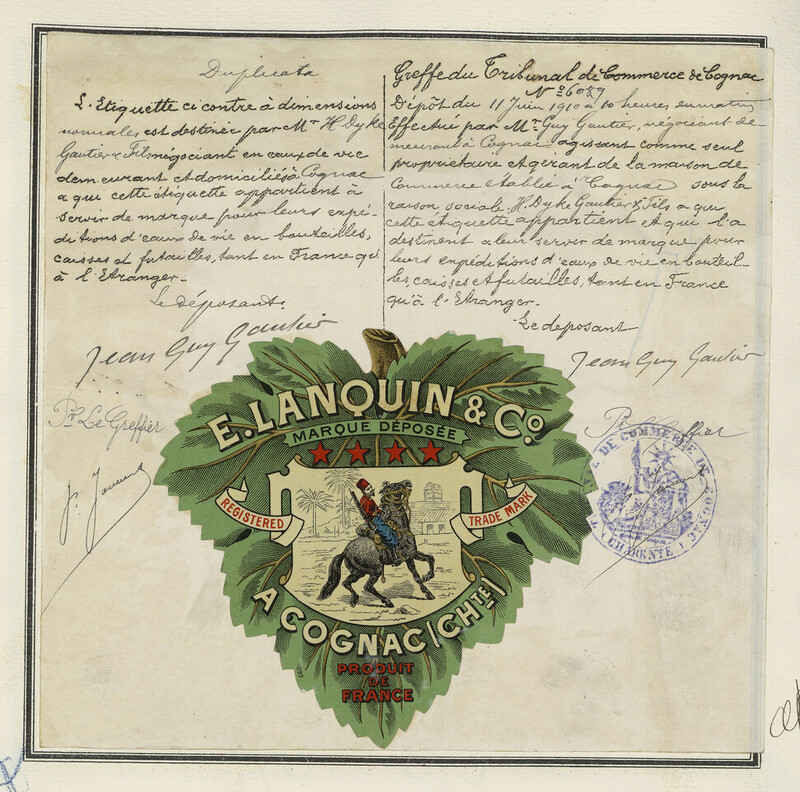 Duplicata
L'Etiquette ci contre à dimensions
normales est destinée par Mr H Dyke
Gautier & Fils négociant en eaux de vie
demeurant et domiciliés à Cognac
a qui cette étiquette appartient à
servir de marque pour leurs expé-
ditions d'eaux de vie en bouteilles,
caisses et futailles, tant en France qu'
à l'Etranger.
Le déposant.
Jean Guy Gautier
Pr Le Greffier
Greffe du Tribunal de Commerce de Cognac
No 6089
Dépôt du 11 Juin 1910 à 10 heures du matin
Effectué par Mr Guy Gautier, négociant de-
meurant à Cognac agissant comme seul
propriétaire et gérant de la maison de
Commerce établie à Cognac sous la
raison sociale, H. Dyke Gautier & Fils a qui
cette étiquette appartient et qui l'a
destinent a leur servir de marque pour
leurs expéditions d'eaux de vie en bouteil-
les, caisses et futailles, tant en France
qu'à l'Etranger.
Le deposant
Jean Guy Gautier
Pr Le Greffier
E. LANQUIN & Co.
MARQUE DÉPOSÉE
REGISTERED
TRADE MARK
A COGNAC (CHTE)
PRODUIT
DE
FRANCE
DE COMMERCE DE COGNAC
(CHARENTE)